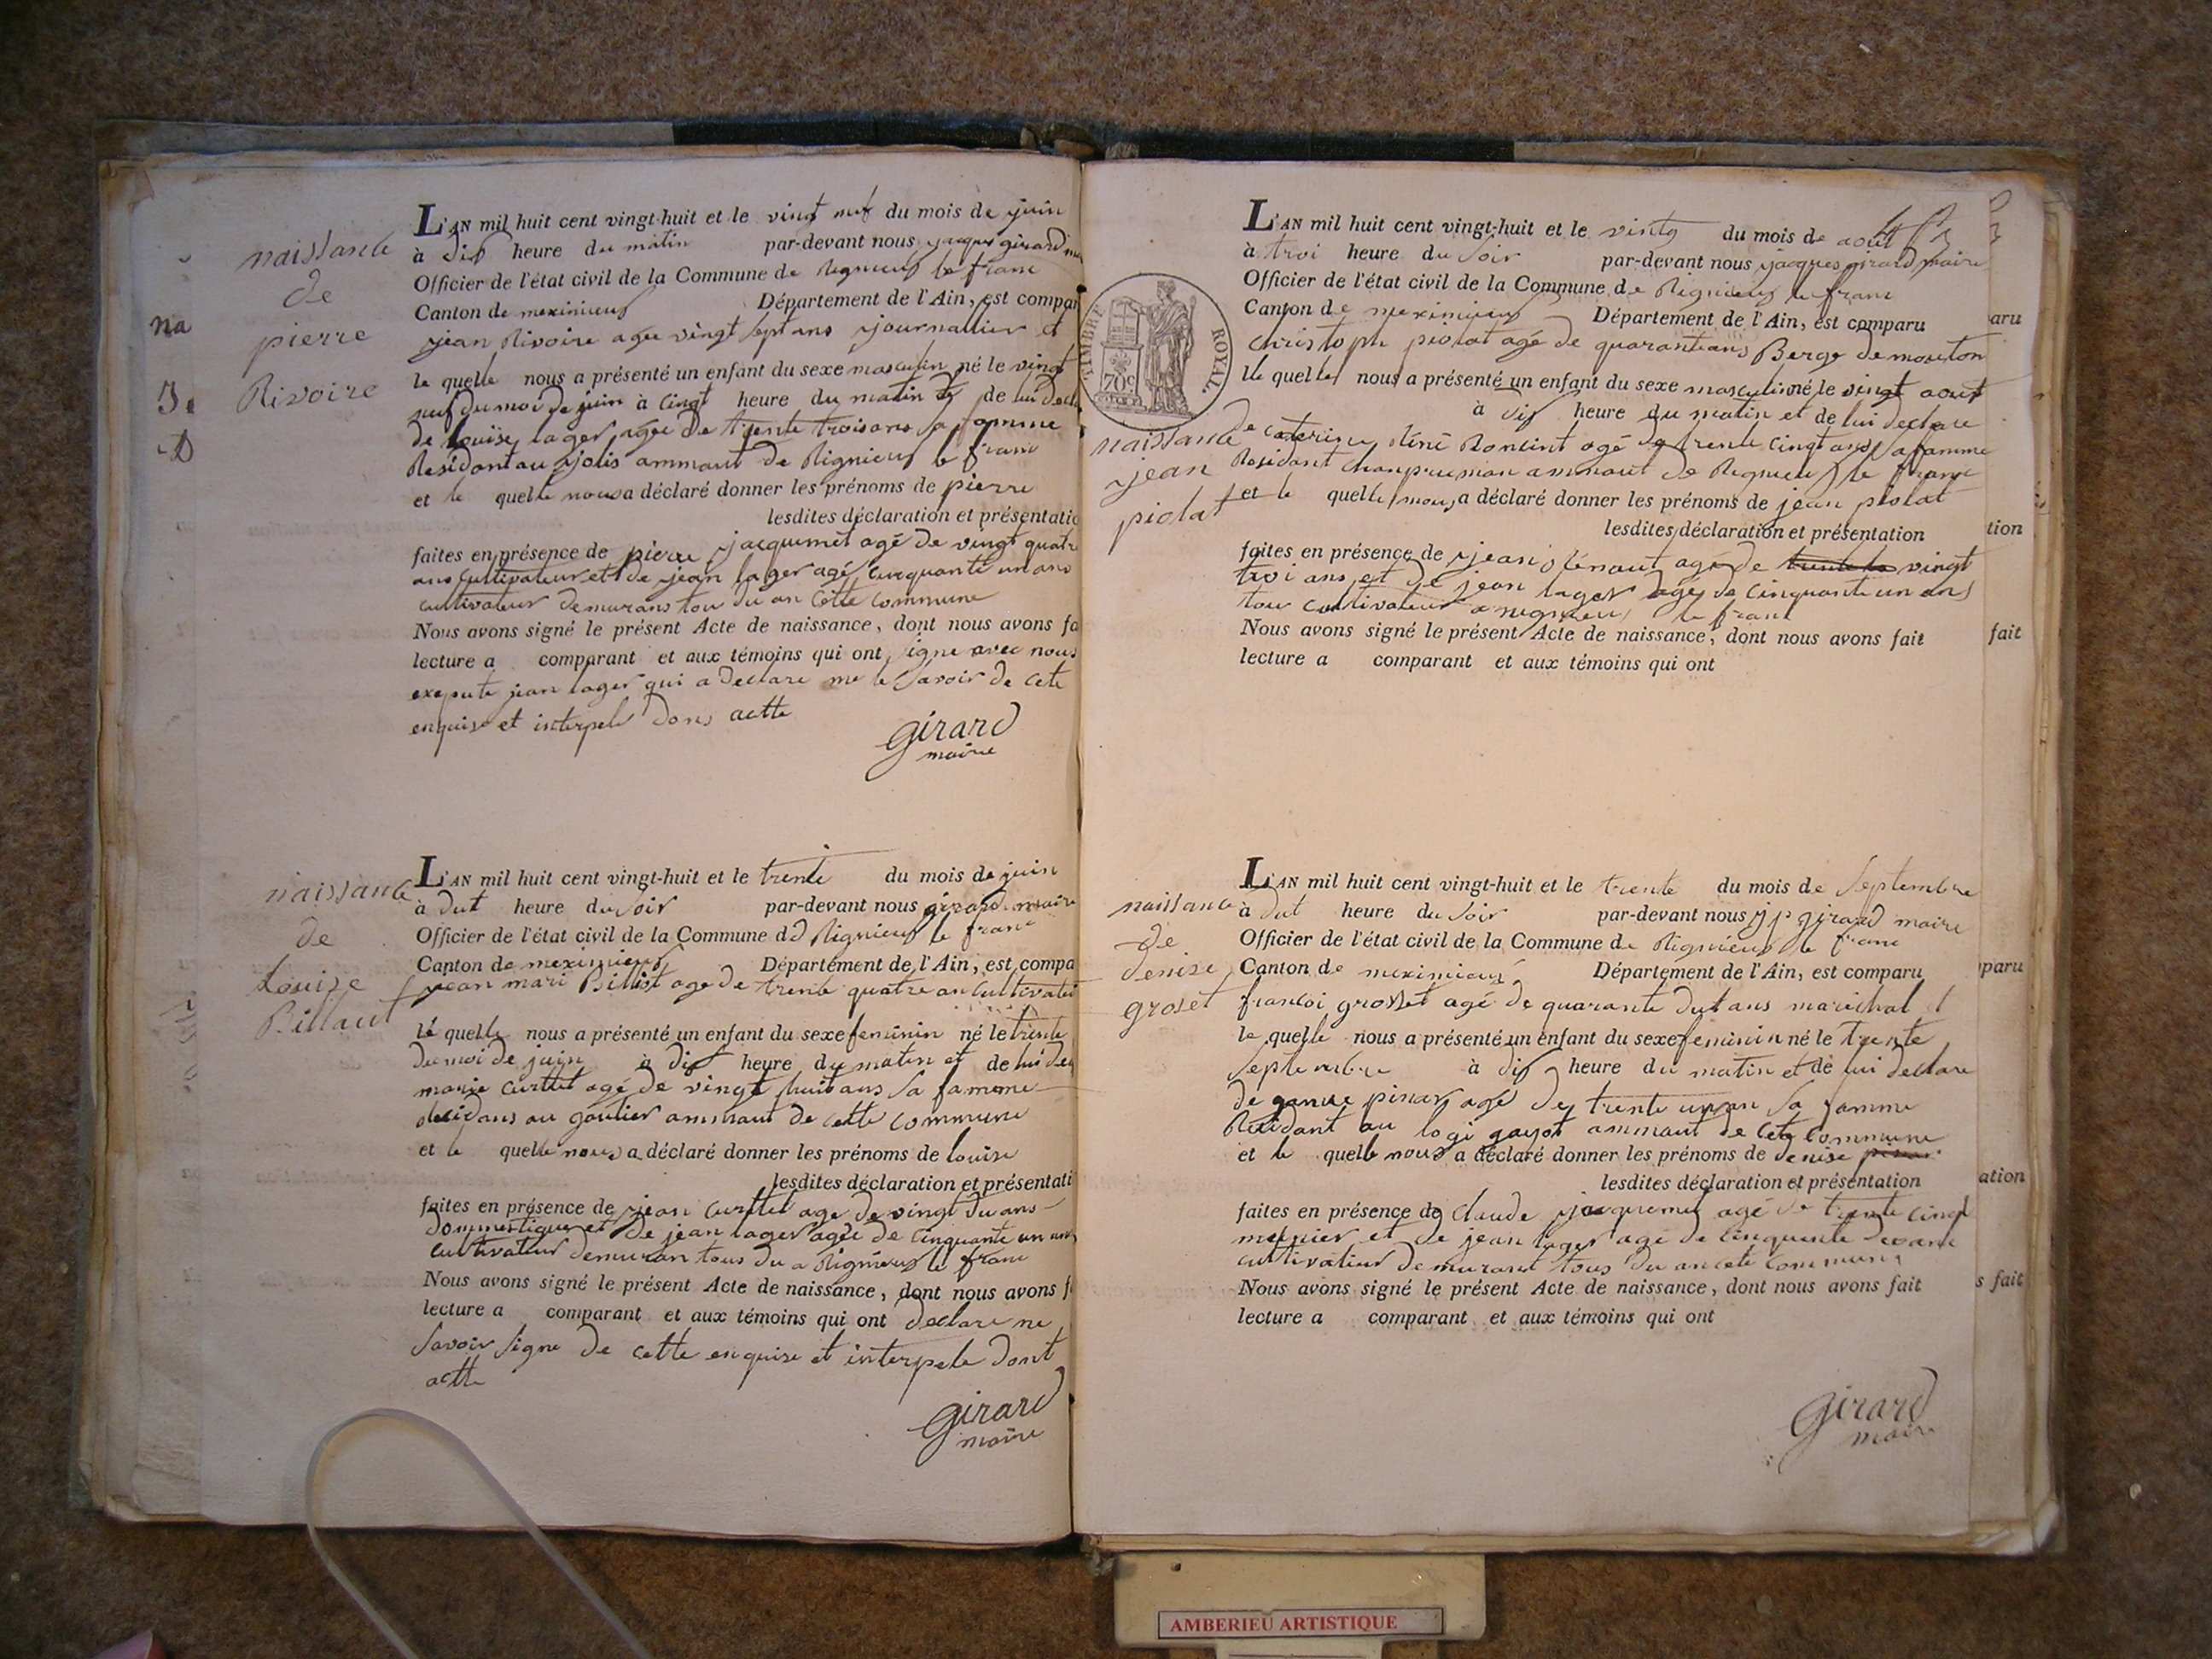 naissance
de
pierre
Rivoire
L'AN mil huit cent vingt-huit et le vingt neuf du mois de juin
à dix heure du matin par-devant nous jacques girard
Officier de l'état civil de la Commune de Rignieux le franc
Canton de meximieux Département de l'Ain, est compar
jean Rivoire agee vingt sept ans journallier et
le quelle nous a présenté un enfant du sexe masculin né le vingt
neuf du moi de juin à cinqt heure du matin de lui decla
de Louise lager agee de trente trois ans sa fomme
Residant au jolis ammaut de Rignieux le franc
et le quelle nous a déclaré donner les prénoms de pierre
lesdites déclaration et présentatio
faites en présence de pierre jacquemet agé de vingt quatr
ans cultivateur et de jean lager agé cinquante un ans
cultivateur demurans tou du an cette commune
Nous avons signé le présent Acte de naissance, dont nous avons fa
lecture a comparant et aux témoins qui ont signe avec nous
exepute jean lager qui a declare ne le savoir de cete
enquise et interpele dons actte
girard
maire
naissance
de
Louise
Billaut
L'AN mil huit cent vingt-huit et le trente du mois de juin
à dut heure du soir par-devant nous girard maire
Officier de l'état civil de la Commune dd Rignieux le franc
Canton de meximieux Département de l'Ain, est compa
jean mari age de trente quatre an cultivateu
lé quelle nous a présenté un enfant du sexe feminin né le trente
du moi de juin à dix heure du matin et de lui dec
marie curttet agé de vingt huit ans sa famme
au goutier ammaut de cette commune
et le quelle nous a déclaré donner les prénoms de louise
lesdites déclaration et présentati
faites en présence de jean curttet age de vingt du ans
dommestique et de jean lager agée de cinquante un ans
cultivateur demuran tous du a Rignieux le franc
Nous avons signé le présent Acte de naissance, dont nous avons f
lecture a comparant et aux témoins qui ont declare ne
savoir signe de cette enquise et interpele dont
actte
girard
maire
TIMBRE ROYAL
70c
naissance
jean
piolat
L'AN mil huit cent vingt-huit et le vingt du mois de août
à troi heure du soir par-devant nous jacques girard maire
Officier de l'état civil de la Commune de Rignieux le franc
Canton de meximieux Département de l'Ain, est comparu
christophe piolat agé de quarantians Berge de mouton
lle quelles nous a présenté un enfant du sexe masculin né le vingt aout
à dix heure du matin et de lui declare
de caterine Roncint agé de trente cinqt ans sa famme
Residant ammaut de Rignieux le franc
et le quelle nous a déclaré donner les prénoms de jean piolat
lesdites déclaration et présentation
faites en présence de jean agé de vingt
troi ans et de jean lager agé de cinquante un ans
tou cultivateur a rignieux le franc
Nous avons signé le présent Acte de naissance, dont nous avons fait
lecture a comparant et aux témoins qui ont
naissance
de
denise
groset
L'AN mil huit cent vingt-huit et le trente du mois de Septembre
à dut heure du soir par-devant nous jp girard maire
Officier de l'état civil de la Commune de Rignieux le franc
Canton de meximieux Département de l'Ain, est comparu
francoi grosset agé de quarante dut ans marichal
le quelle nous a présenté un enfant du sexe feminin né le trente
septembre à dix heure du matin et de lui declare
de pinar agé de trente un an sa famme
Residant au logi gayot ammaut de cete commune
et le quelle nous a déclaré donner les prénoms de denise
lesdites déclaration et présentation
faites en présence de Claude jacquemet agé de trente cinqt
meunier et de jean lager age de cinquente
cultivateur demurant tous du an cete commune
Nous avons signé le présent Acte de naissance, dont nous avons fait
lecture a comparant et aux témoins qui ont
girard
maire
na
aru
tion
fait
paru
ation
s fait
AMBERIEU ARTISTIQUE